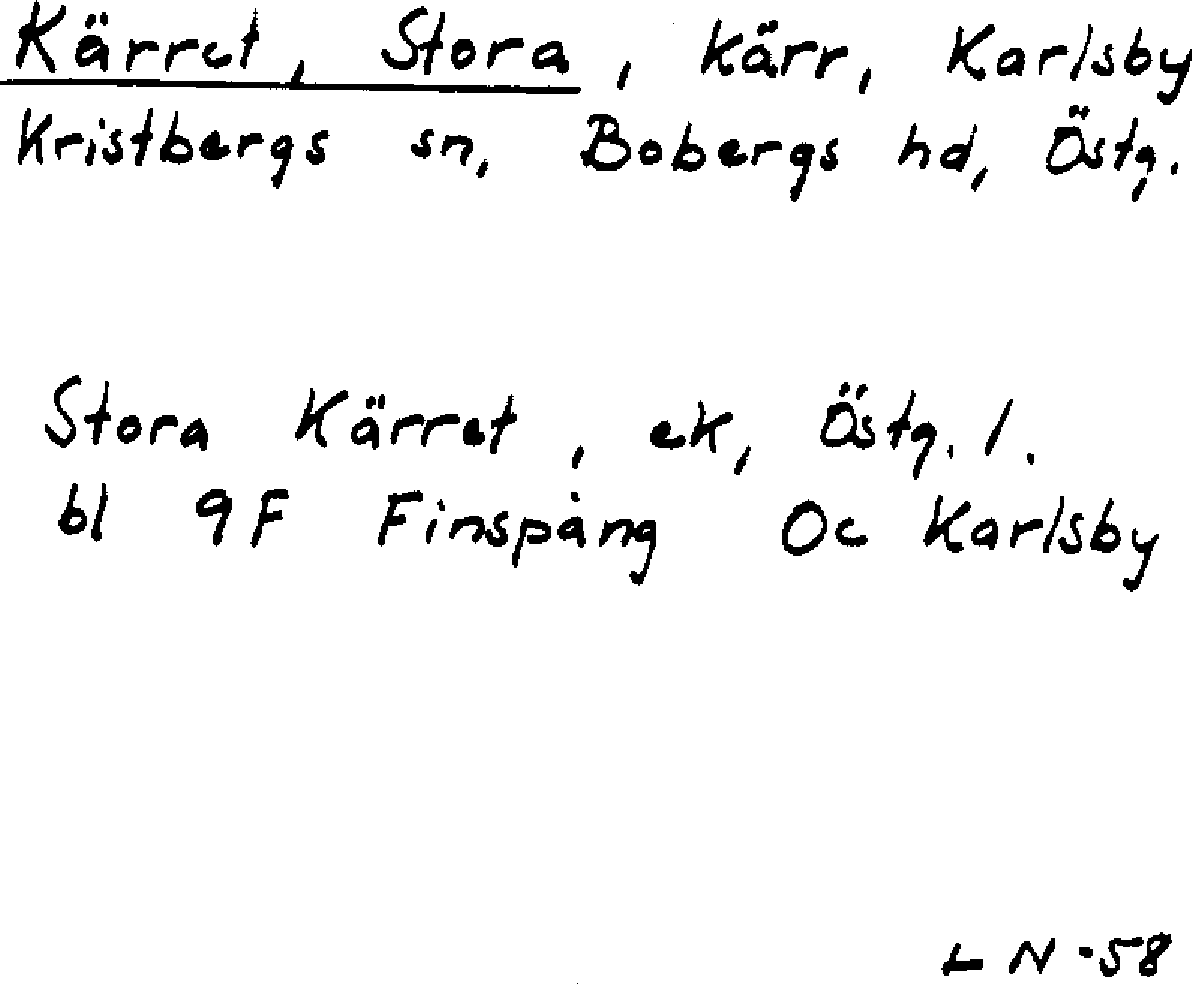 Kärret, Stora, kärr, Karlsby
Kristbergs sn, Bobergs hd, Östg.
Stora Kärret, ek, Östg. l.
bl 9F Finspång Oc Karlsby
LN -58